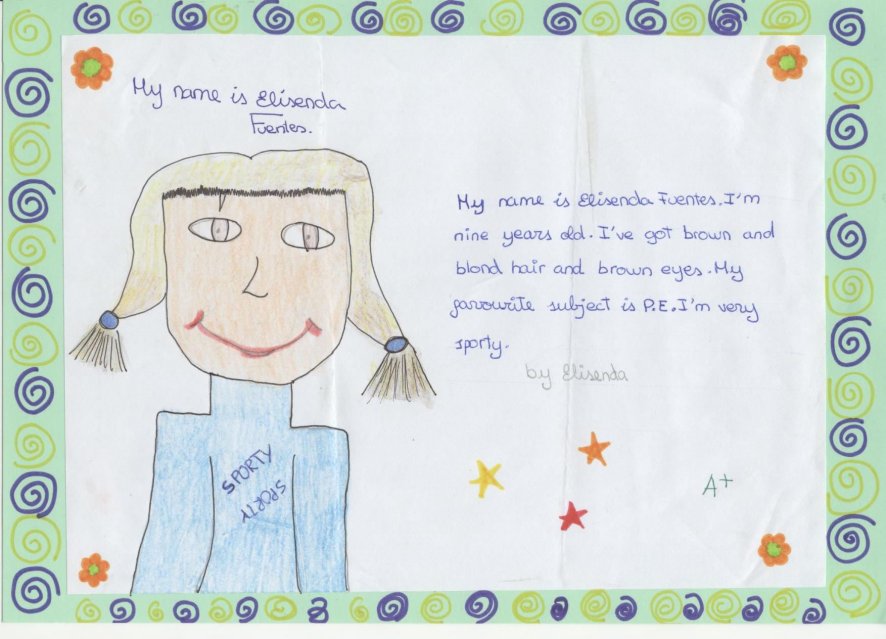 My name is Elisenda
Fuentes.
My name is Elisenda Fuentes. I'm
nine years old. I've got brown and
blond hair and brown eyes. My
favourite subject is P.E. I'm very
sporty.
by Elisenda
SPORTY
SPORTY
A+